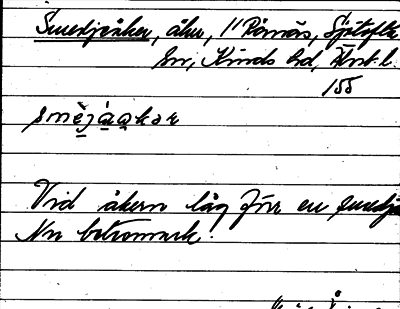 Smedjeåker, åker, 1" Rånnäs, Sjötofta
sn, Kinds hd, Älvsb. l.
155
smèjáạkar
Vid åkern låg förr en smedja
Nu betesmark.